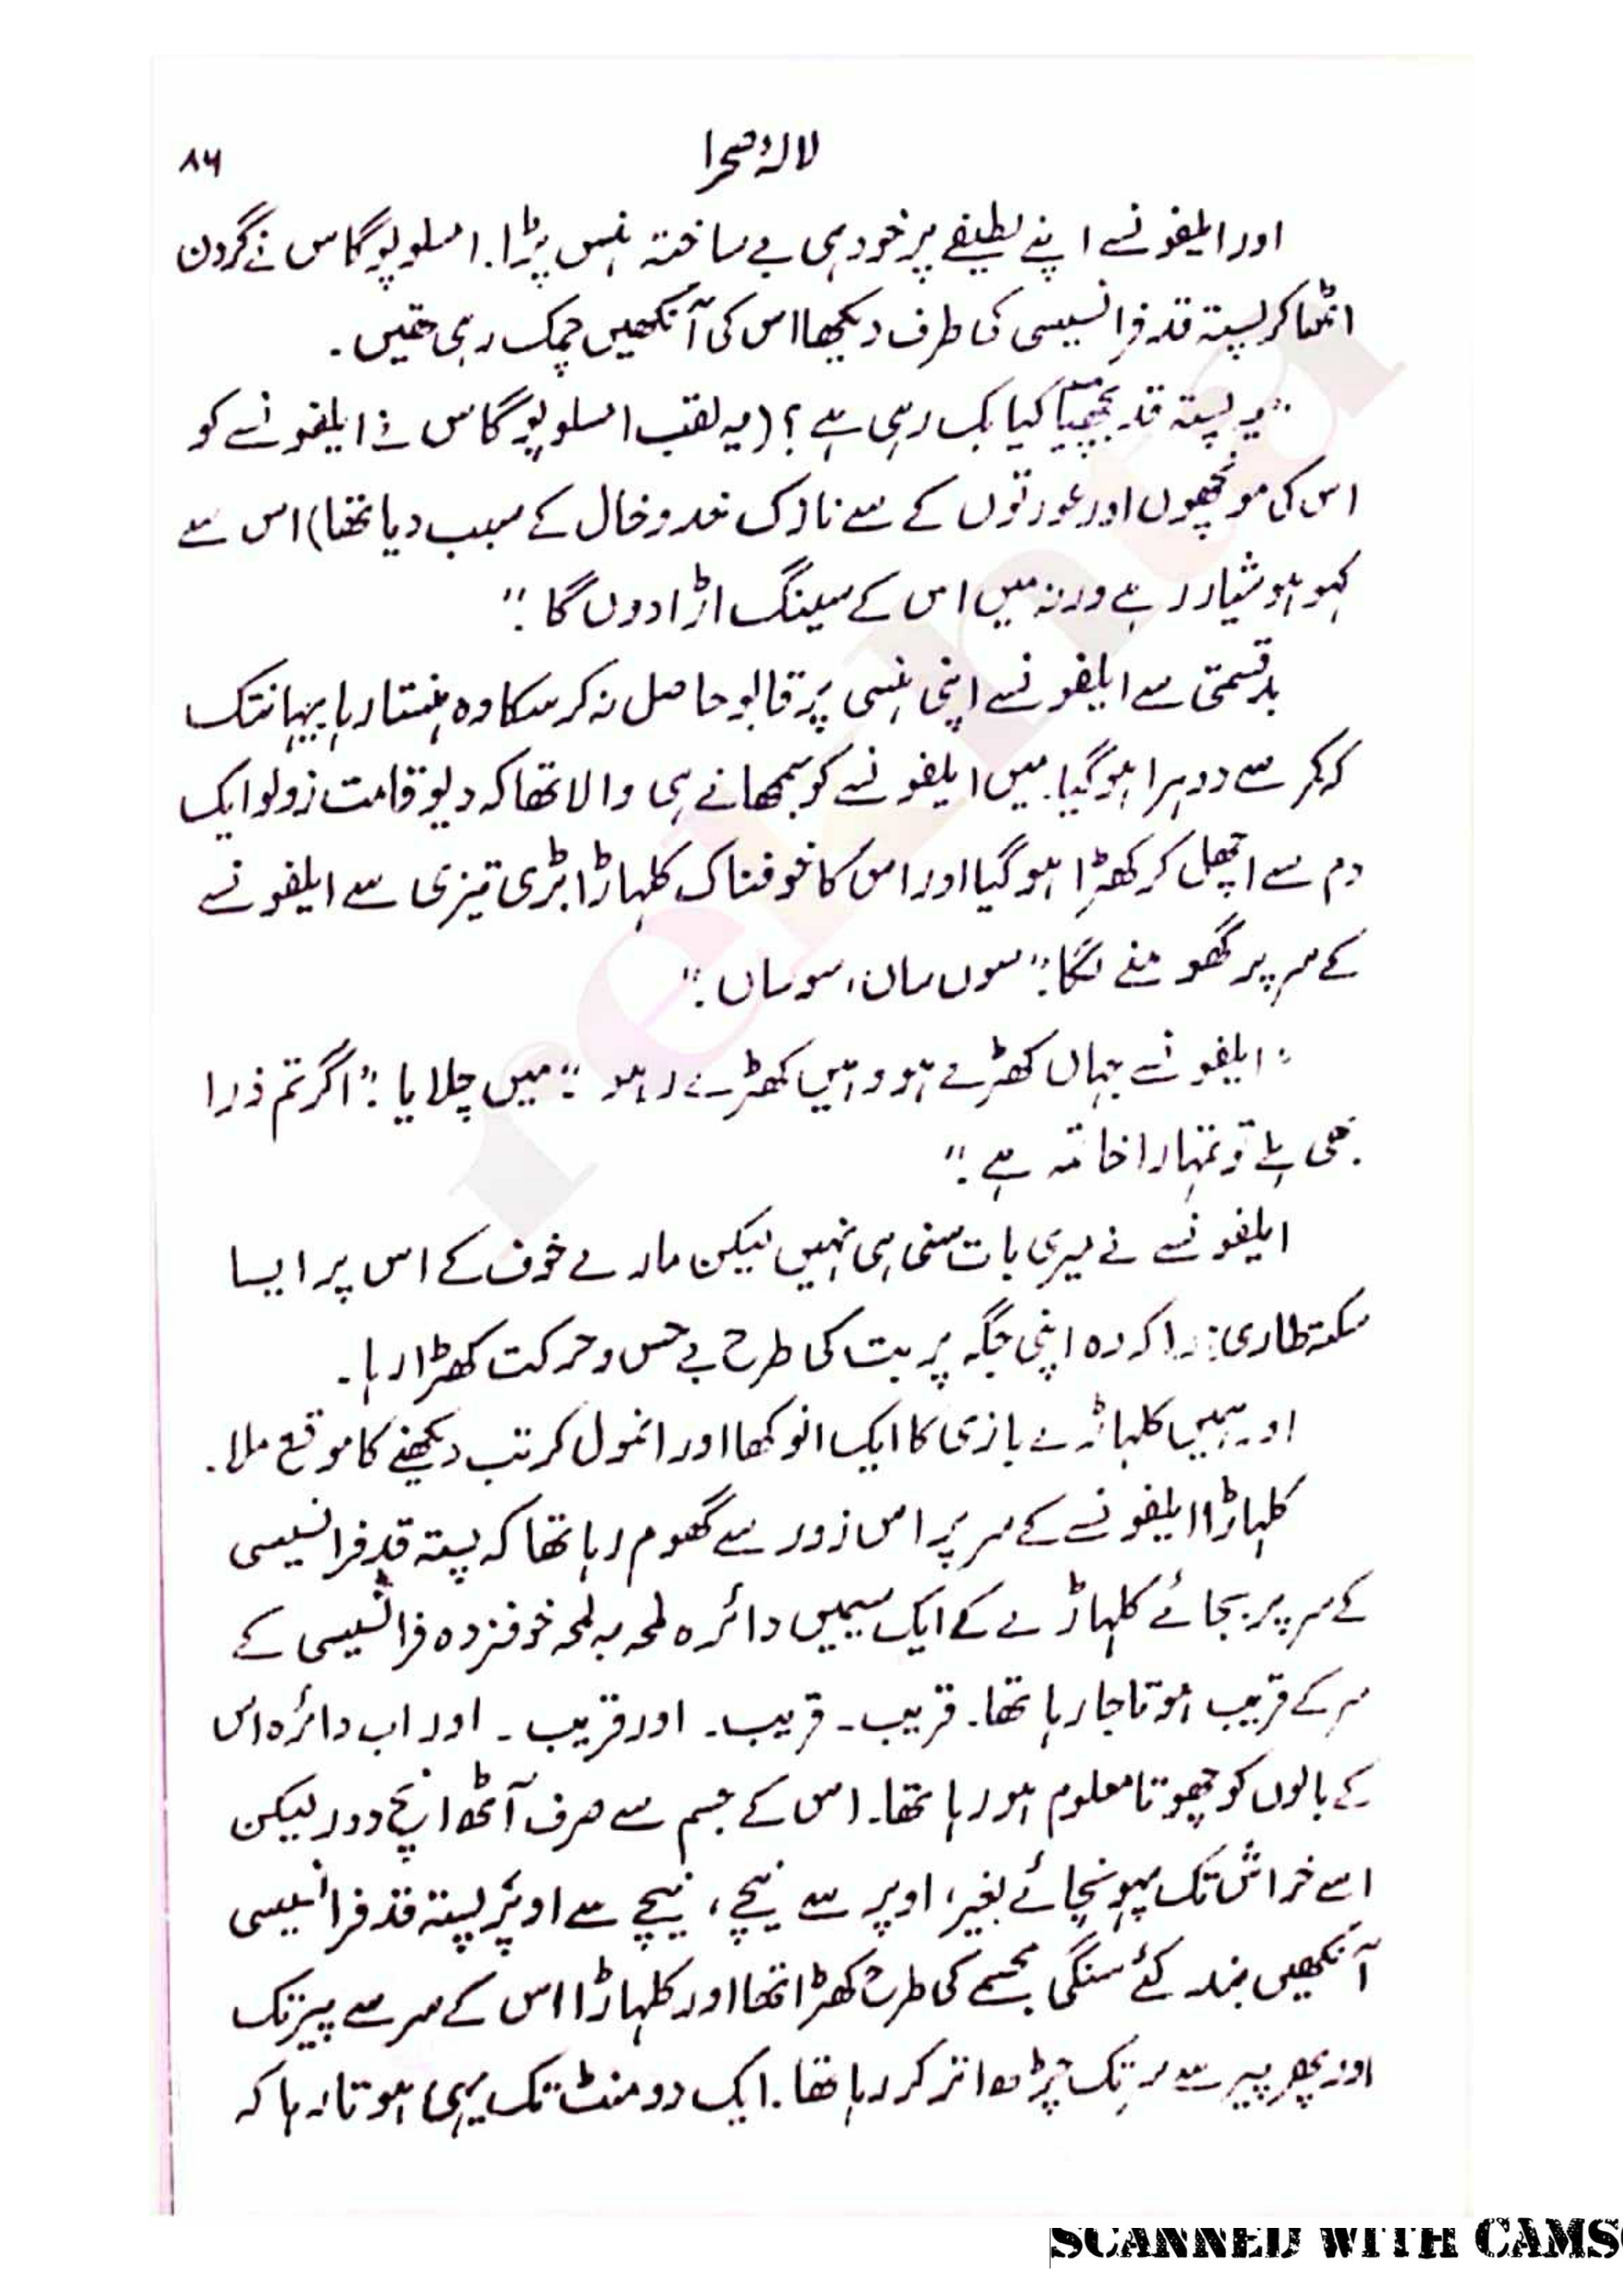 لالۂ صحرا ۸۶
اور ایلفونسے اپنے لطیفے پر خود ہی بے ساختہ ہنس پڑا. امسلوپوگاس نے گردن
اٹھا کر پستہ قد فرانسیسی کی طرف دیکھا اس کی آنکھیں چمک رہی تھیں.
"یہ پستہ قد بچھیّا کیا بک رہی ہے؟ (یہ لقب امسلوپوگاس نے ایلفونسے کو
اس کی مونچھوں اور عورتوں کے سے نازک خدوخال کے سبب دیا تھا) اس سے
کہو ہوشیار رہے ورنہ میں اس کے سینگ اڑا دوں گا."
بدقسمتی سے ایلفونسے اپنی ہنسی پر قابو حاصل نہ کر سکا وہ ہنستا رہا یہانتک
کہ کمر سے دوہرا ہو گیا. میں ایلفونسے کو سمجھانے ہی والا تھا کہ دیو قامت زولو ایک
دم سے اچھل کر کھڑا ہو گیا اور اس کا خوفناک کلہاڑا بڑی تیزی سے ایلفونسے
کے سر پر گھومنے لگا." سوں ساں، سو ساں."
"ایلفونسے جہاں کھڑے ہو وہیں کھڑے رہو" میں چلایا." اگر تم ذرا
بھی ہلے تو تمہارا خاتمہ ہے."
ایلفونسے نے میری بات سنی ہی نہیں لیکن مارے خوف کے اس پر ایسا
سکتہ طاری ہوا کہ وہ اپنی جگہ پر بت کی طرح بے حس و حرکت کھڑا رہا.
اور ہمیں کلہاڑے بازی کا ایک انوکھا اور انمول کرتب دیکھنے کا موقع ملا.
کلہاڑا ایلفونسے کے سر پر اس زور سے گھوم رہا تھا کہ پستہ قد فرانسیسی
کے سر پر بجائے کلہاڑے کے ایک سیمیں دائرہ لمحہ بہ لمحہ خوفزدہ فرانسیسی کے
سر کے قریب ہوتا جا رہا تھا۔ قریب۔ قریب۔ اور قریب۔ اور اب دائرہ اس
کے بالوں کو چھوتا معلوم ہو رہا تھا۔ اس کے جسم سے صرف آٹھ انچ دور لیکن
اسے خراش تک پہونچائے بغیر، اوپر سے نیچے، نیچے سے اوپر پستہ قد فرانسیسی
آنکھیں بند کئے سنگی مجسمے کی طرح کھڑا تھا اور کلہاڑا اس کے سر سے پیر تک
اور پھر پیر سے سر تک چڑھ اتر کر رہا تھا. ایک دو منٹ تک یہی ہوتا رہا کہ
rekhta
SCANNED WITH CAMS